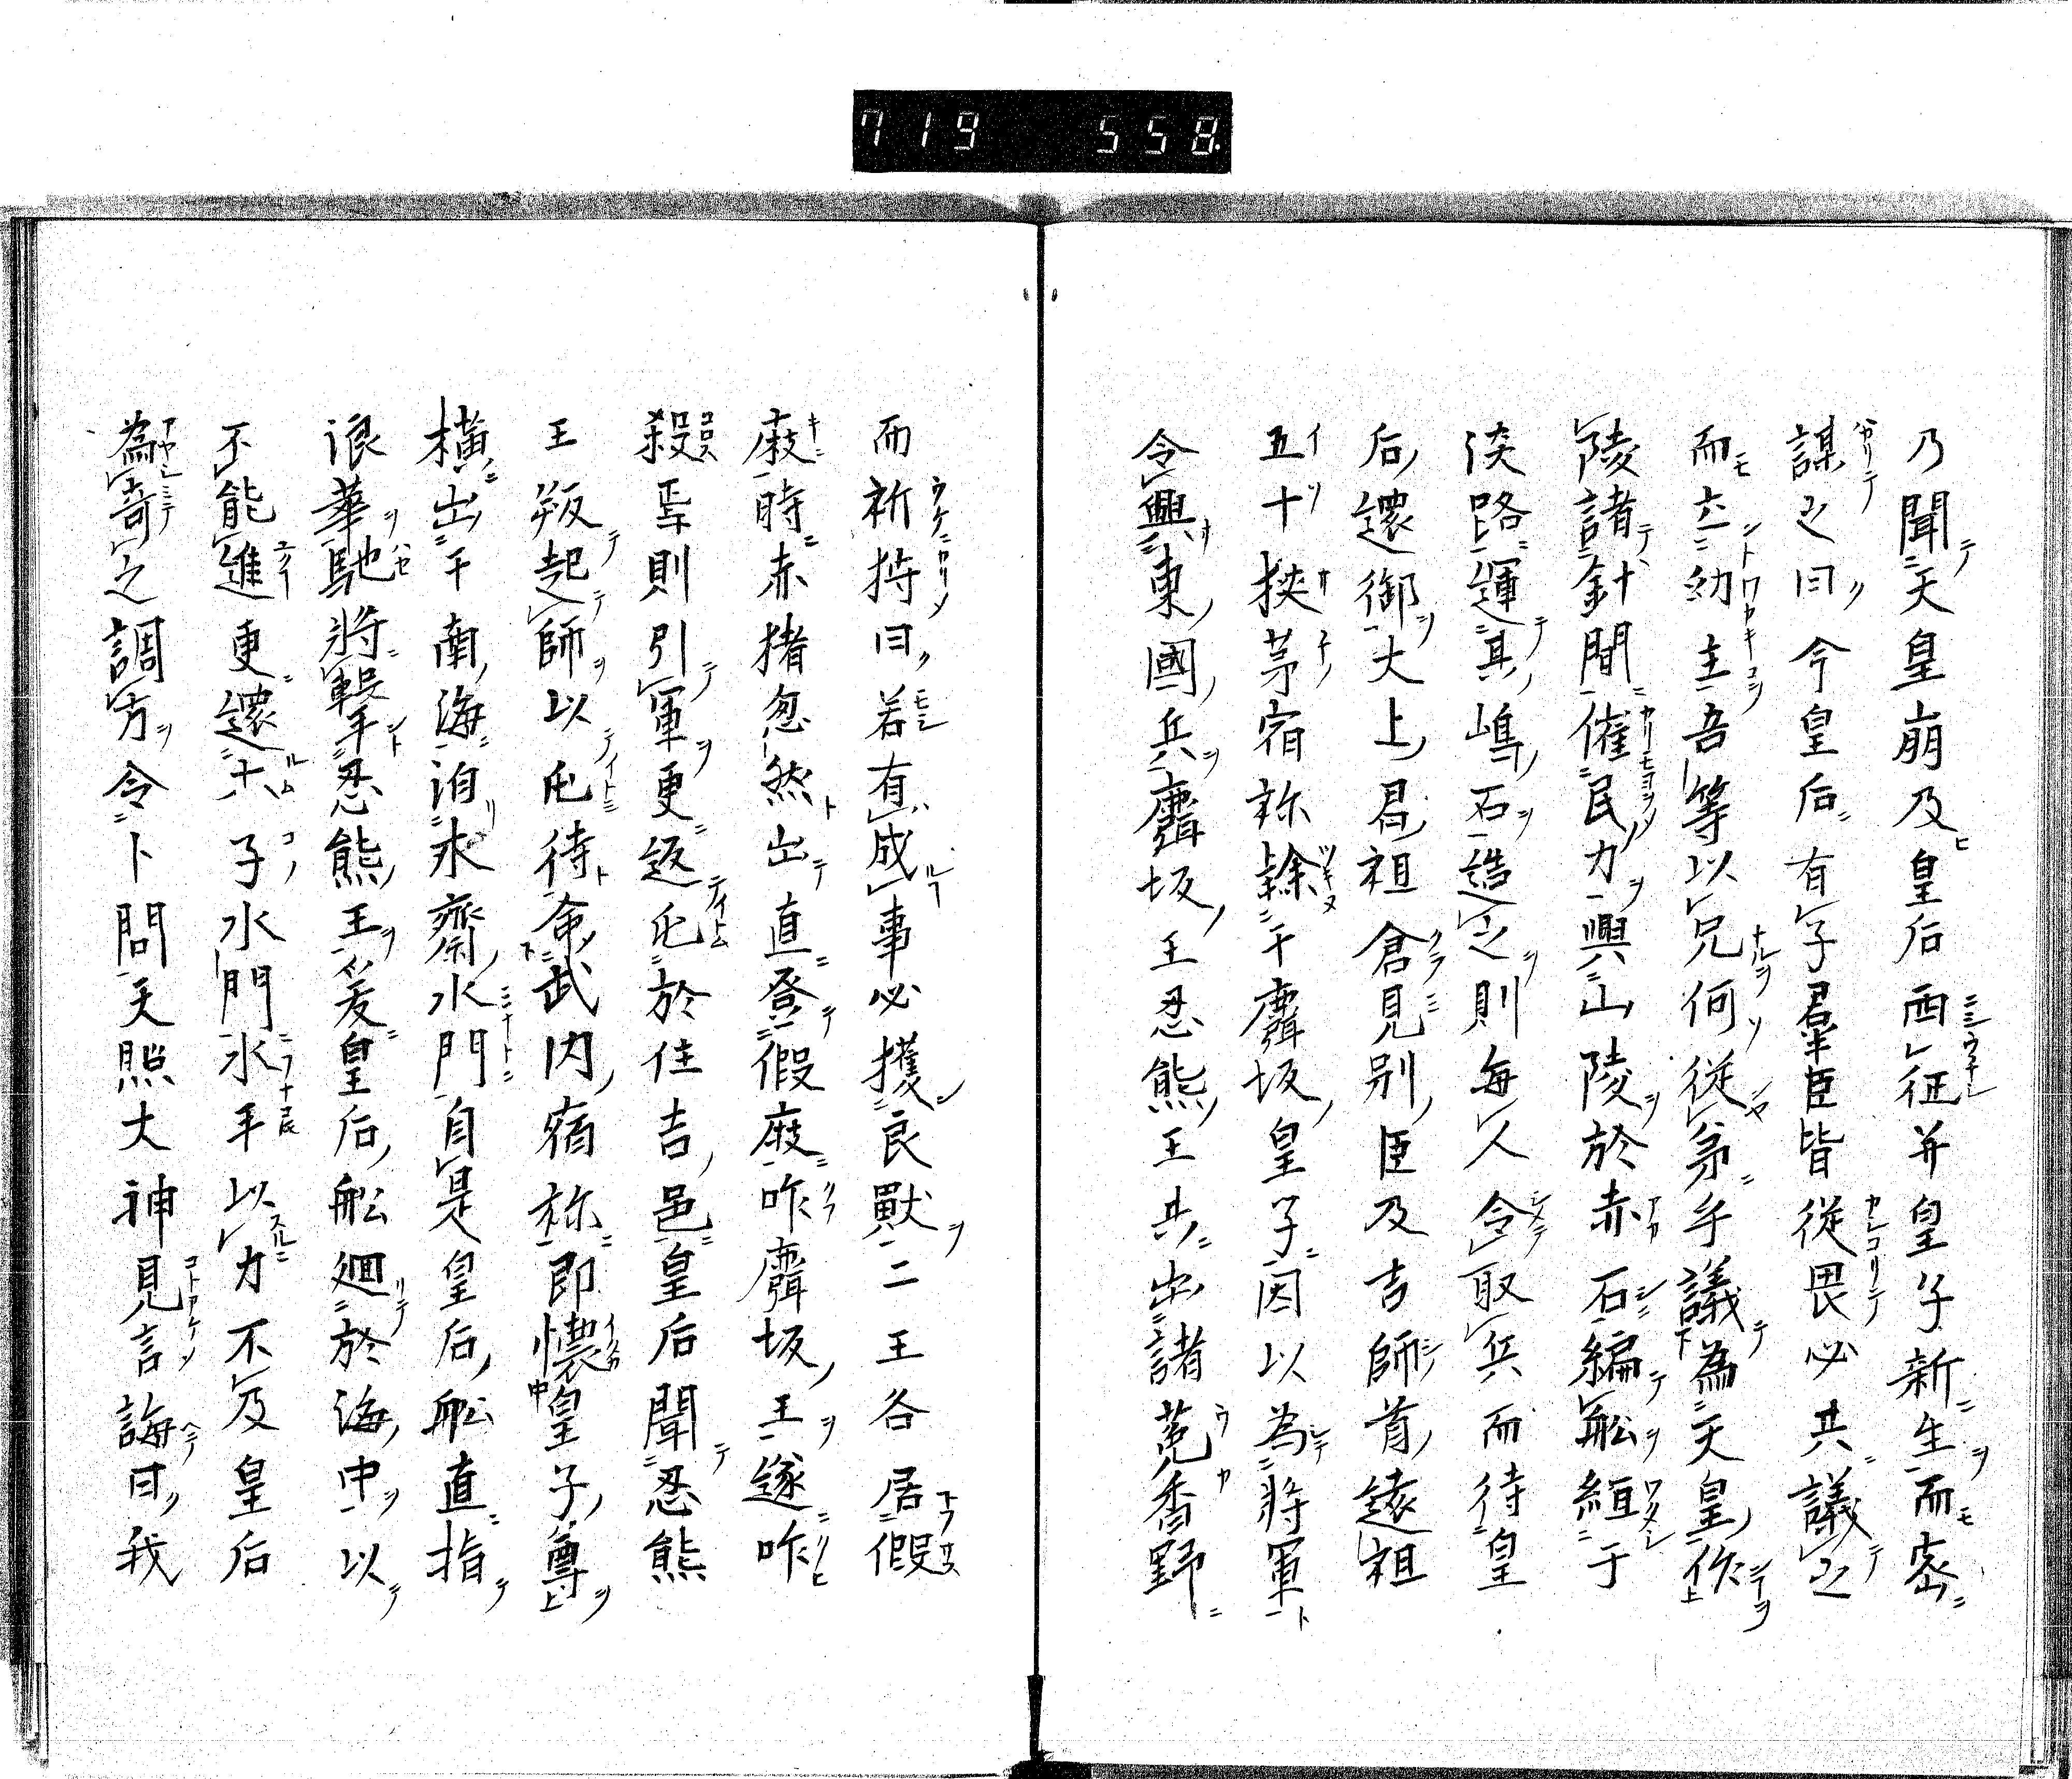 719 558
乃聞天皇崩及皇后西征并皇子新生而密
謀之曰今皇后有子群臣皆從畏必共議之
而立幼主吾等以兄何從弟乎議為天皇作
陵諸針間催民力興山陵於赤石編舩絙于
淡路運其嶋石造之則每人令取兵而待皇
后還御犬上君祖倉見別臣及吉師首遠祖
五十挾茅宿祢隷于麛坂皇子因以為將軍
令興東國兵麛坂王忍熊王共出諸菟香野
而祈狩曰若有成事必獲良獸二王各居假
庪時赤猪忽然出直登假庪咋麛坂王遂咋
殺焉則引軍更返屯於住吉邑皇后聞忍熊
王叛起師以屯待命武内宿祢即懷皇子尊
横出于南海泊氷齋水門自是皇后舩直指
浪華馳將擊忍熊王爰皇后舩廻於海中以
不能進更還六子水門水手以力不及皇后
為奇之調方令卜問天照大神見言誨曰我